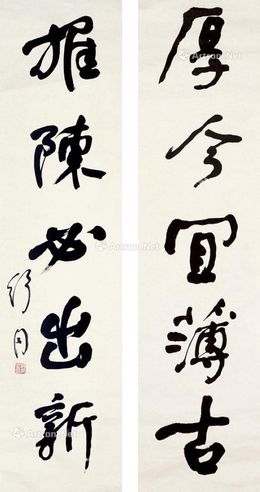 厚今宜薄古
推陈必出新
舒同
Artron.Net
Artron.Net